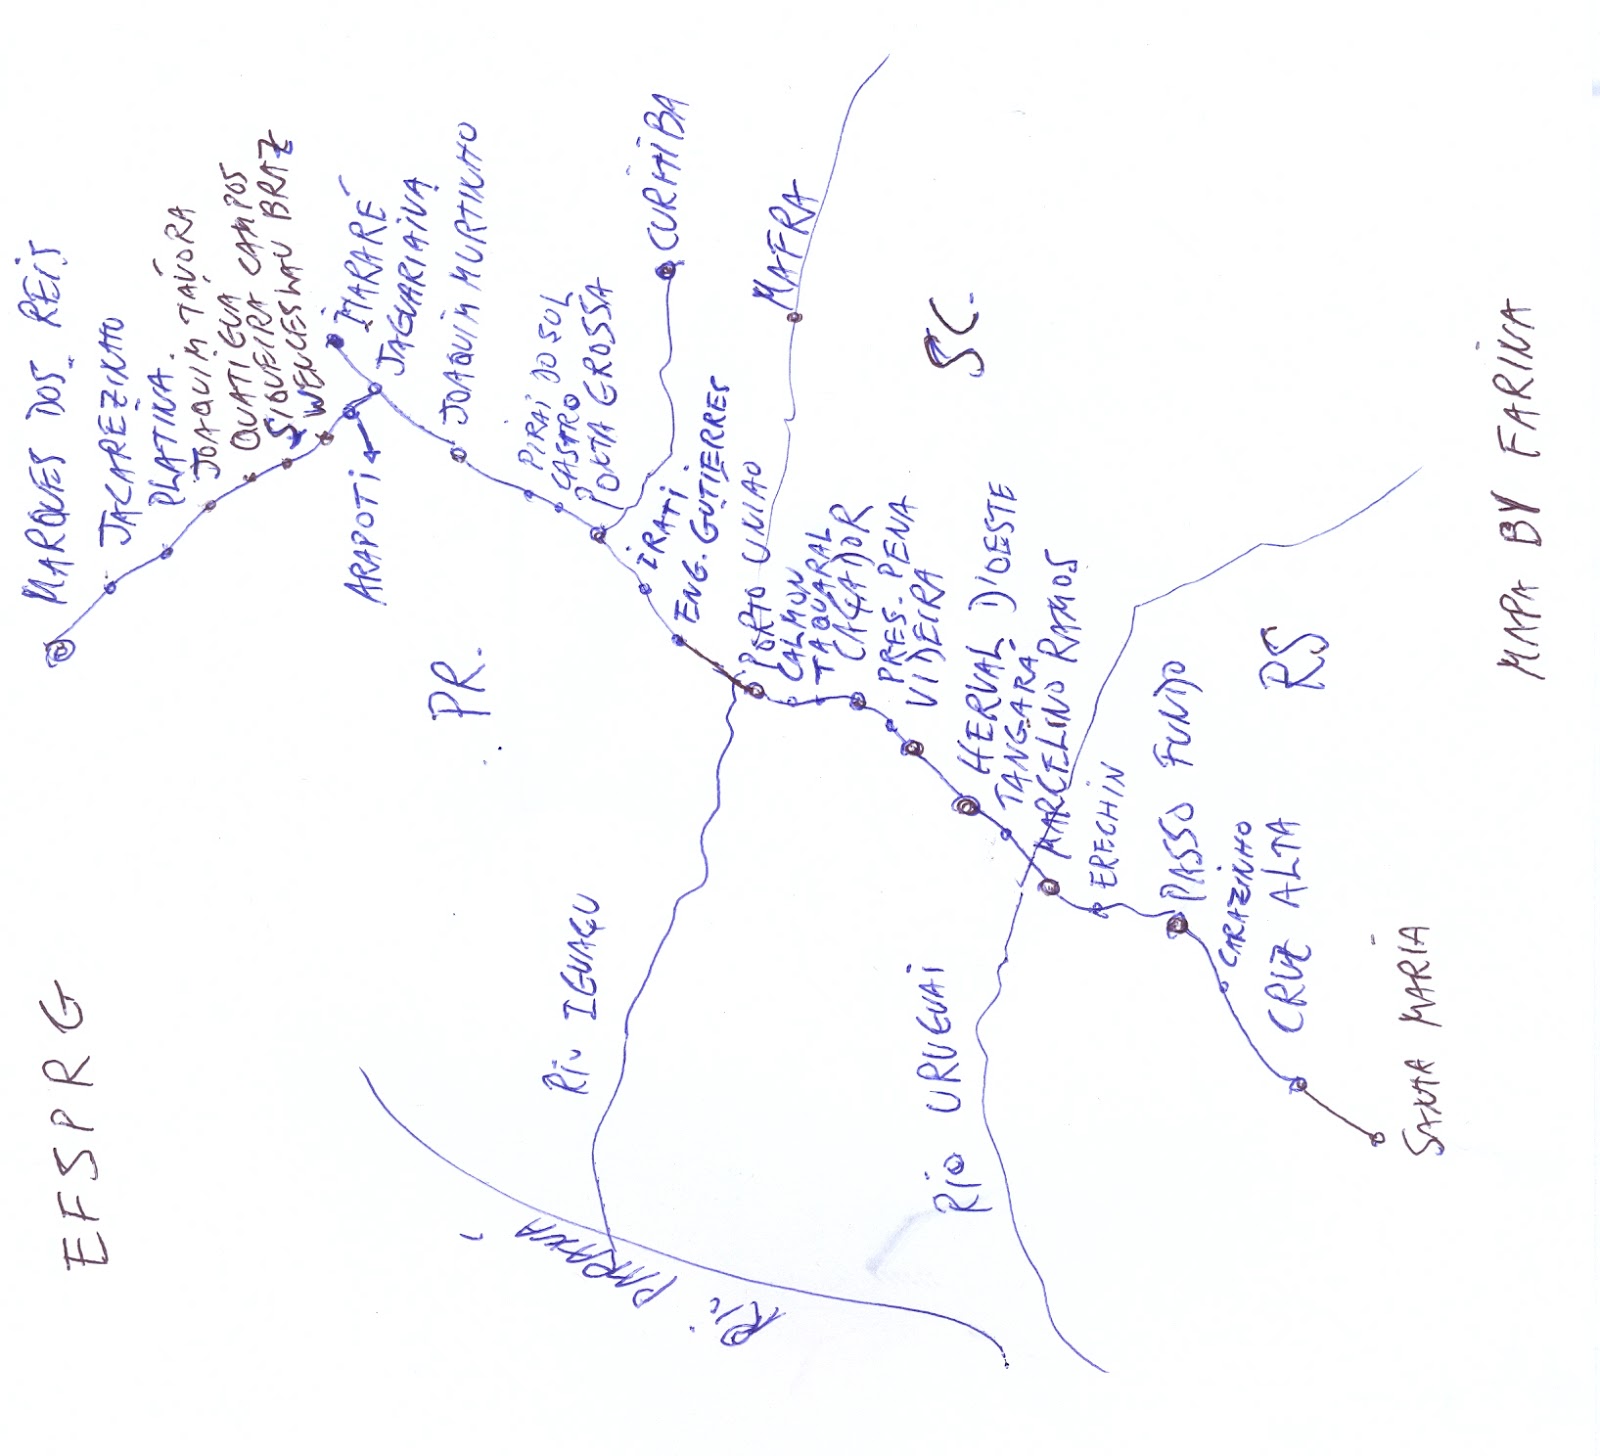 EFSPRG
MARQUES DOS REIS
JACAREZINHO
PLATINA.
JOAQUIM TAVORA
QUATIGUA
SIQUEIRA CAMPOS
WENCESLAU BRAZ
ITARARÉ
JAGUARIAIVA
ARAPOTI
JOAQUIM MURTINHO
PIRAI DO SUL
CASTRO
PONTA GROSSA
CURITIBA
IRATI
ENG. GUTIERRES
PR.
PORTO UNIAO
MAFRA
CALMON
TAQUARAL
CAÇADOR
PRES. PENA
VIDEIRA
HERVAL D'OESTE
TANGARA
MARCELINO RAMOS
SC.
RIO IGUAÇU
RIO PARANA
RIO URUGUAI
ERECHIN
PASSO FUNDO
CARAZINHO
CRUZ ALTA
SANTA MARIA
RS
MAPA BY FARINA